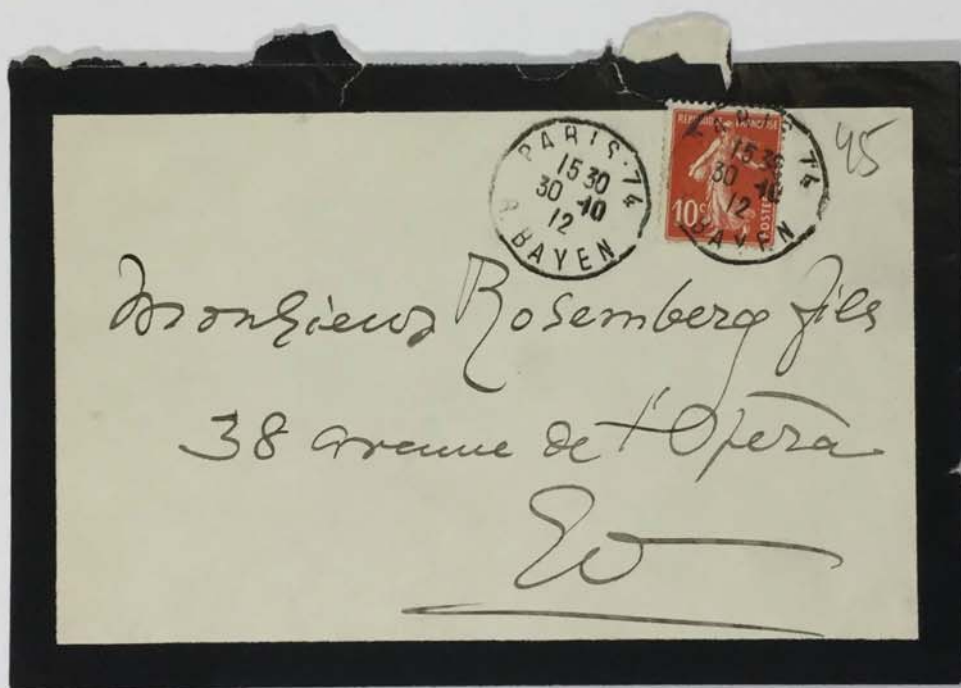 PARIS·74
15 30
30 -10
12
R. BAYEN
REPUBLIQUE FRANÇAISE
10c
POSTES
PARIS 74
15 30
30 -10
12
BAYEN
45
Monsieur Rosemberg fils
38 avenue de l'Opéra